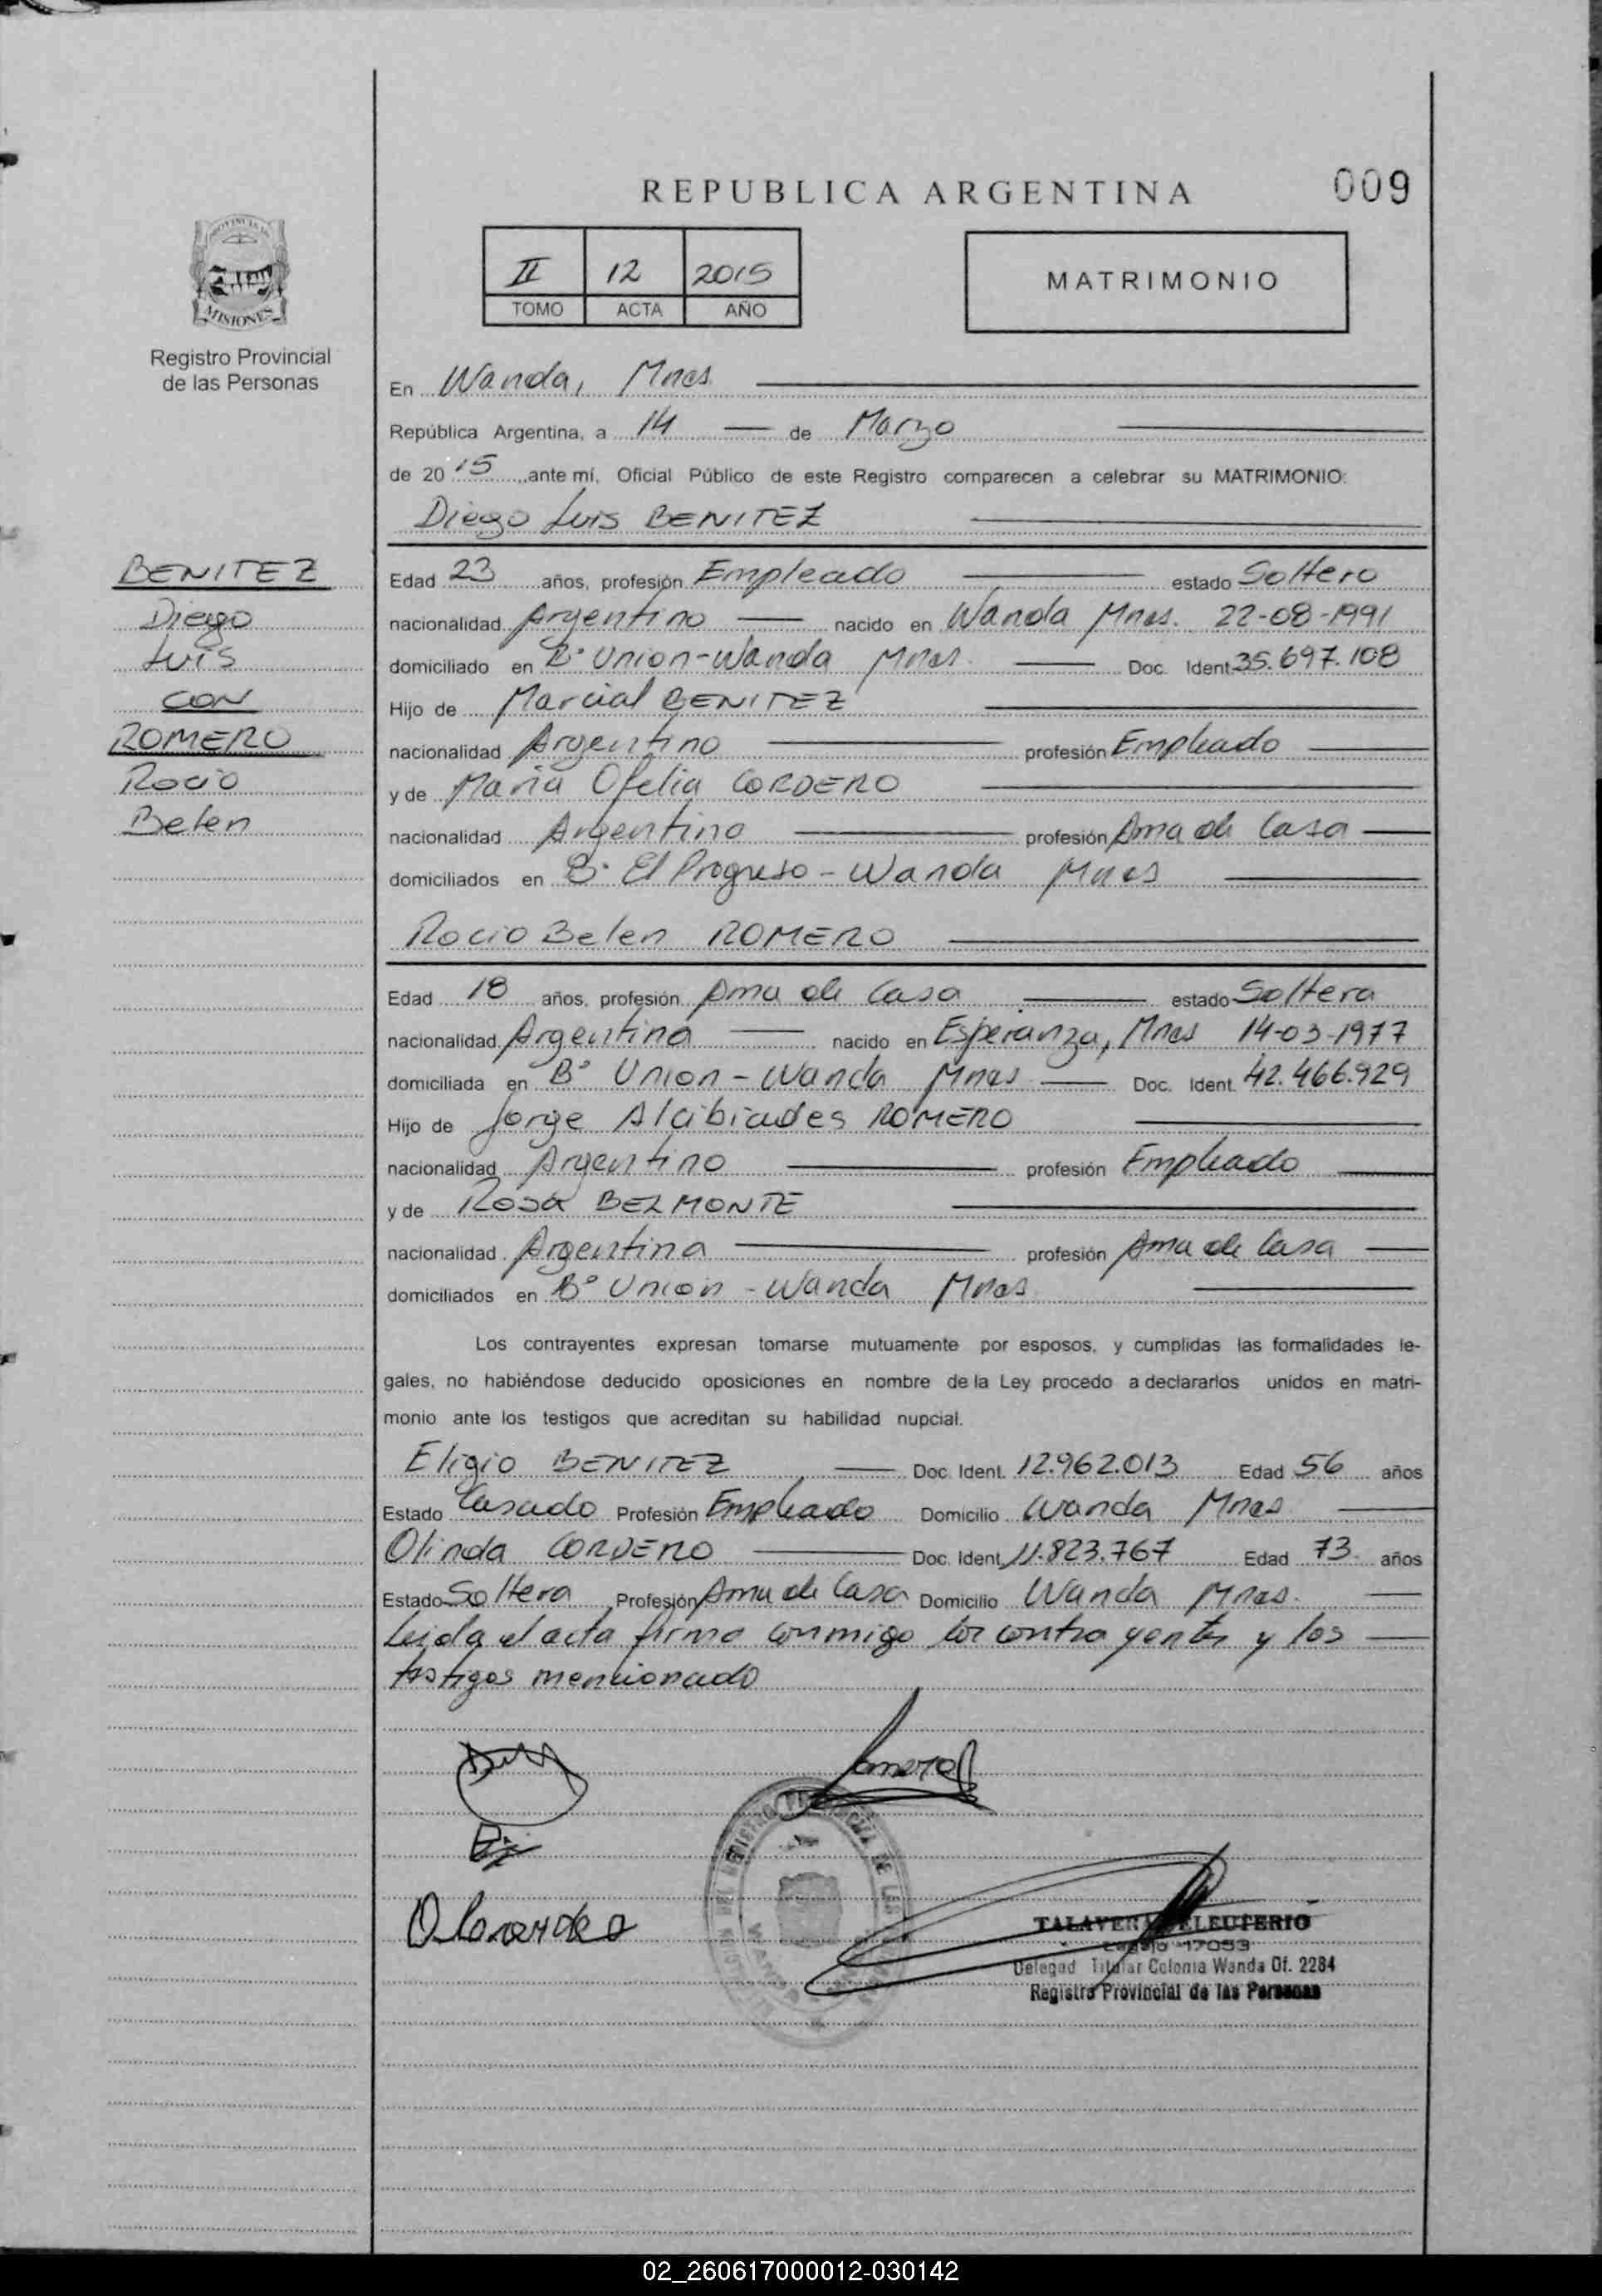 REPUBLICA ARGENTINA
009
PROVINCIA DE
MISIONES
Registro Provincial
de las Personas
II 12 2015
TOMO ACTA AÑO
MATRIMONIO
En Wanda, Mnes
República Argentina, a 14 de Marzo
de 20 15 ante mí, Oficial Público de este Registro comparecen a celebrar su MATRIMONIO:
Diego Luis BENITEZ
BENITEZ
Diego
Luis
CON
ROMERO
Rocio
Belen
Edad 23 años, profesión Empleado estado Soltero
nacionalidad Argentino nacido en Wanda Mnes. 22-08-1991
domiciliado en B° Union-Wanda Mnes. Doc. Ident 35.697.108
Hijo de Marcial BENITEZ
nacionalidad Argentino profesión Empleado
y de Maria Ofelia CORDERO
nacionalidad Argentina profesión Ama de Casa
domiciliados en B° El Progreso - Wanda Mnes
Rocio Belen ROMERO
Edad 18 años, profesión Ama de Casa estado Soltera
nacionalidad Argentina nacido en Esperanza, Mnes 14-03-1977
domiciliada en B° Union - Wanda Mnes Doc. Ident. 42.466.929
Hijo de Jorge Alcibiades ROMERO
nacionalidad Argentino profesión Empleado
y de Rosa BELMONTE
nacionalidad Argentina profesión Ama de Casa
domiciliados en B° Union - Wanda Mnes
Los contrayentes expresan tomarse mutuamente por esposos, y cumplidas las formalidades le-
gales, no habiéndose deducido oposiciones en nombre de la Ley procedo a declararlos unidos en matri-
monio ante los testigos que acreditan su habilidad nupcial.
Eligio BENITEZ Doc. Ident. 12.962.013 Edad 56 años
Estado Casado Profesión Empleado Domicilio Wanda Mnes
Olinda CORDERO Doc. Ident. 11.823.767 Edad 73 años
Estado Soltera Profesión Ama de Casa Domicilio Wanda Mnes.
Leida el acta firma conmigo los contrayentes y los
testigos mencionado
TALAVERA ELEUTERIO
Legajo 17053
Delegad Titular Colonia Wanda Of. 2284
Registro Provincial de las Personas
02_260617000012-030142